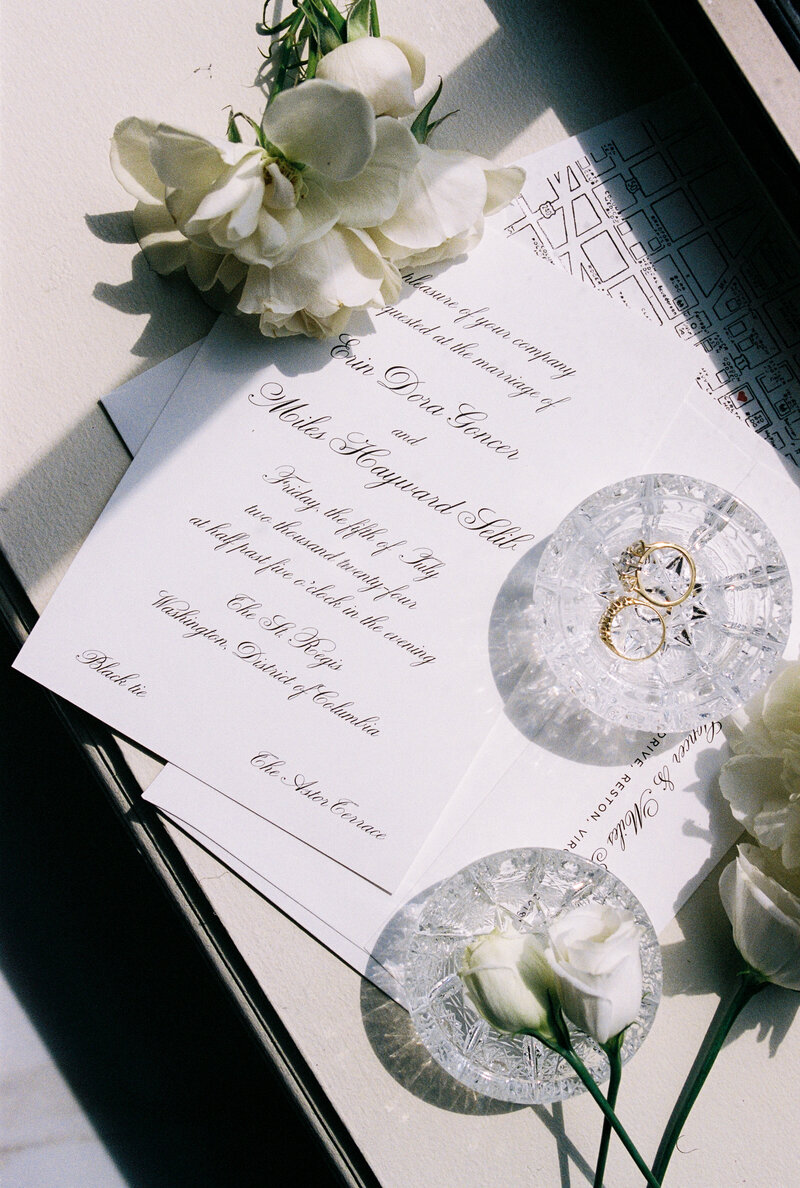 pleasure of your company
quested at the marriage of
Erin Dora Goncer
and
Miles Hayward Sehb
Friday, the fifth of July
two thousand twenty-four
at half past five o'clock in the evening
The St. Regis
Washington, District of Columbia
Black tie
The Astor Terrace
Goncer & Miles
DRIVE, RESTON, VIR